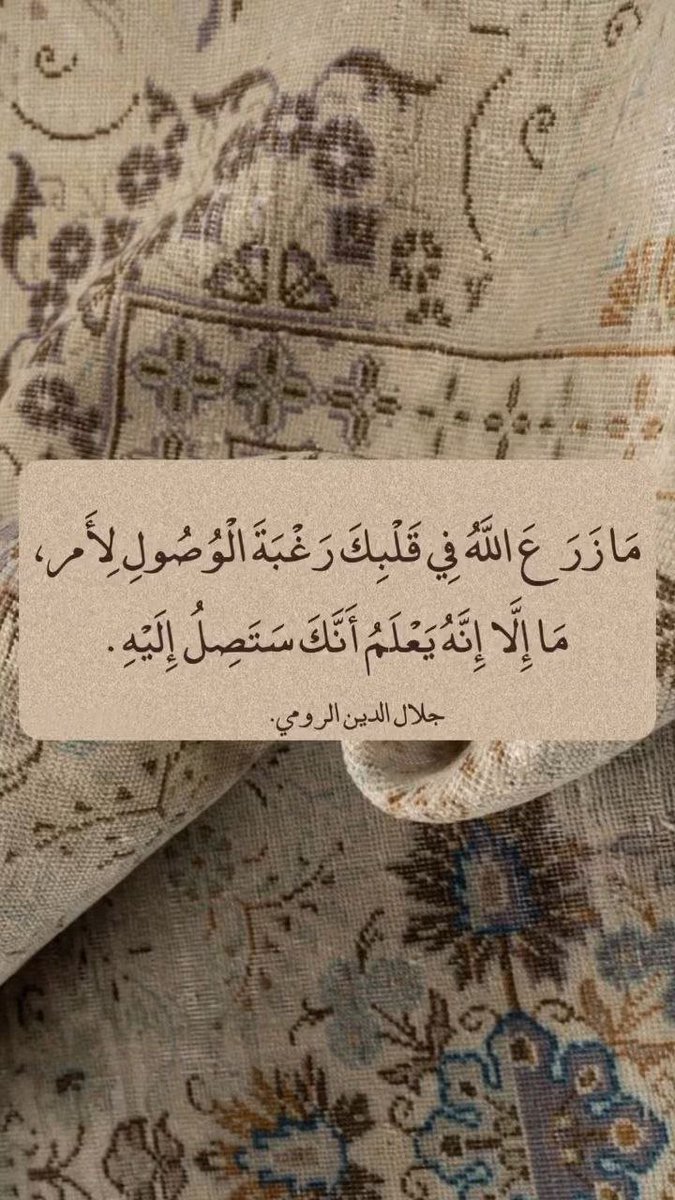 مَا زَرَعَ اللَّهُ فِي قَلْبِكَ رَغْبَةَ الْوُصُولِ لِأَمر،
مَا إِلَّا إِنَّهُ يَعْلَمُ أَنَّكَ سَتَصِلُ إِلَيْهِ.
جلال الدين الرومي.